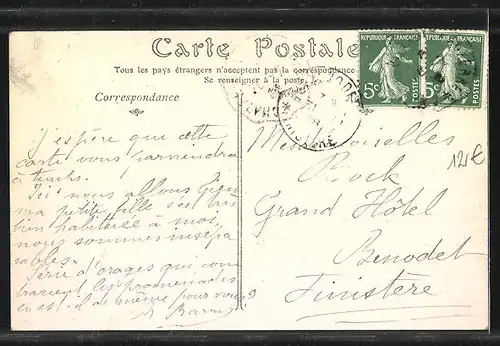 Carte Postale
Tous les pays étrangers n'acceptent pas la correspondance
Se renseigner à la poste.
RÉPUBLIQUE FRANÇAISE
RÉPUBLIQUE FRANÇAISE
5c
POSTES
5c
POSTES
Correspondance
j'espère que cette
carte vous parviendra
à temps.
Ici nous allons
ma petite fille s'est très
bien habituée à moi,
nous sommes insépa
rables.
Série d'orages qui con
trarient les promenades
en est-il de même pour vous?
Mesdemoiselles
Grand Hôtel
Benodet
Finistère
12€